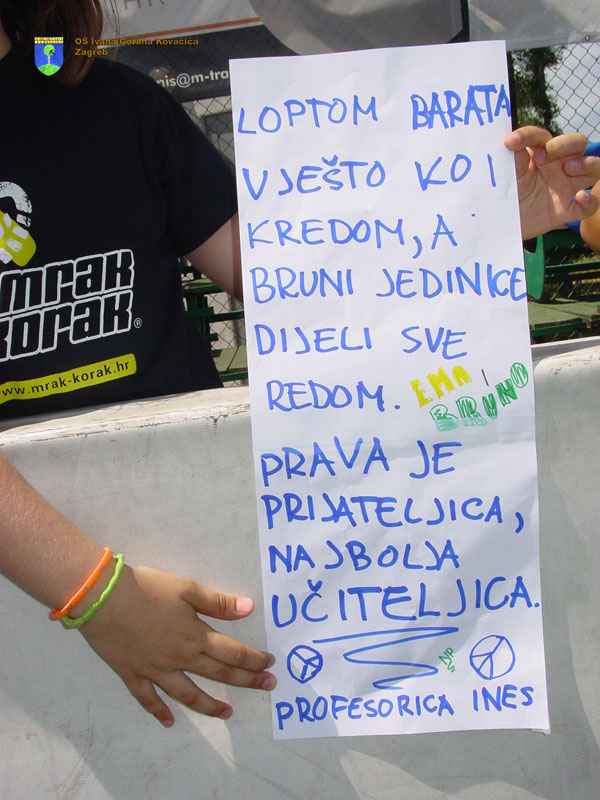 OŠ Ivana Gorana Kovačića
Zagreb
nis@m-tra
LOPTOM BARATA
VJEŠTO KO I
KREDOM, A
BRUNI JEDINICE
DIJELI SVE
REDOM. EMA I
BRUNO
PRAVA JE
PRIJATELJICA,
NAJBOLJA
UČITELJICA.
PROFESORICA INES
mrak
korak®
www.mrak-korak.hr